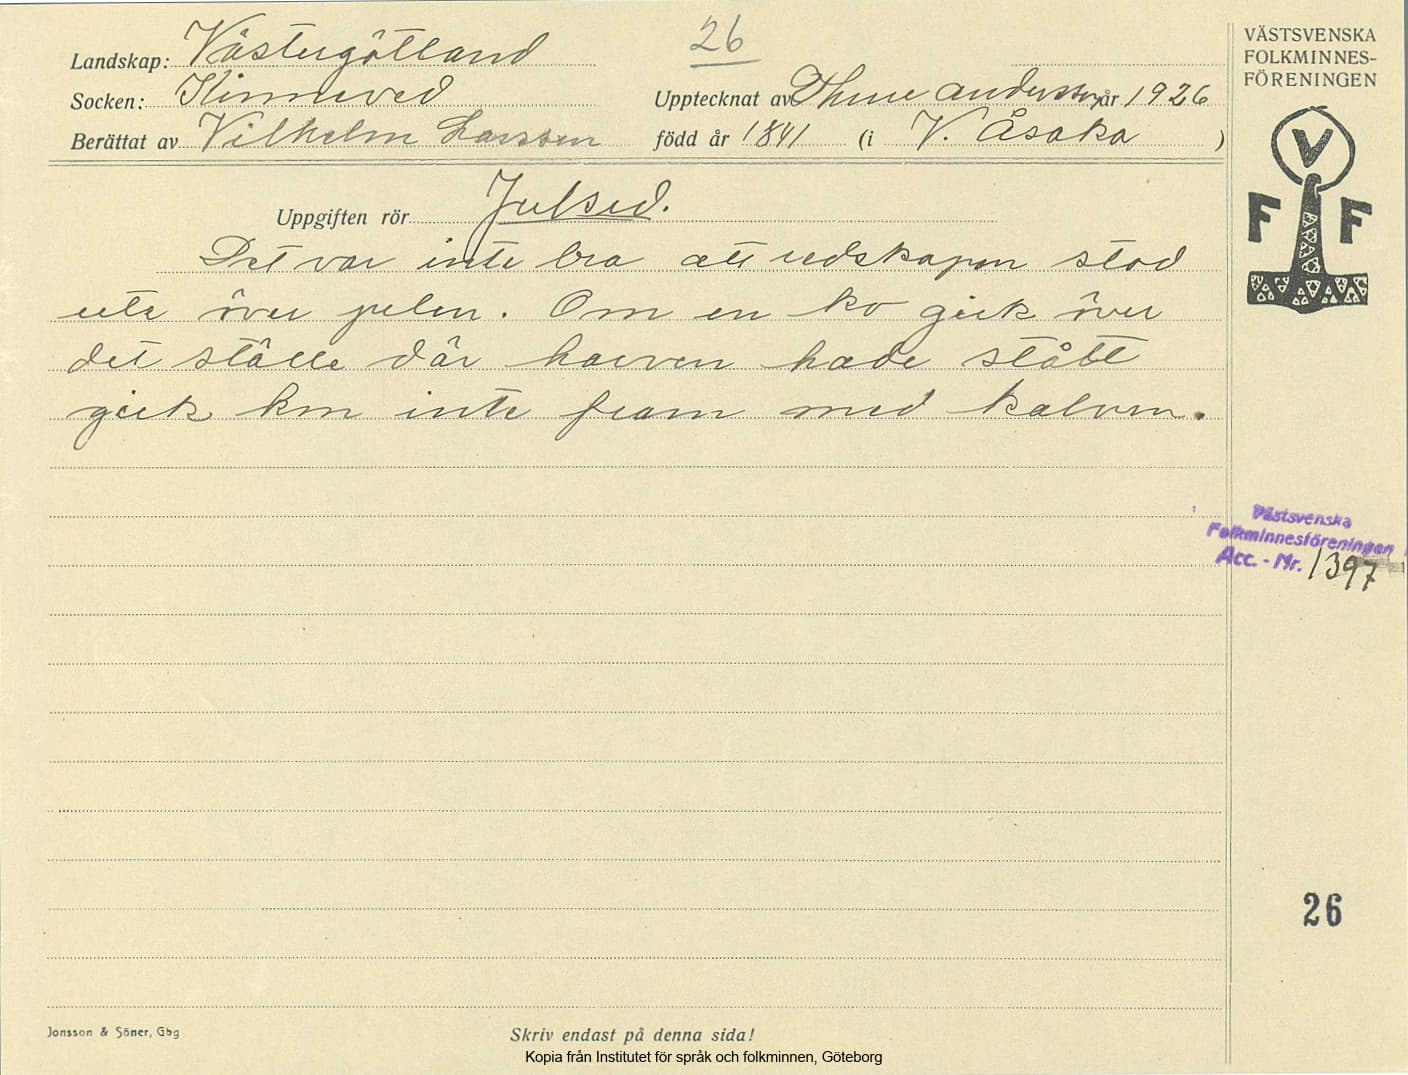 26
Landskap: Västergötland
Socken: Kinneved
Upptecknat av Thure Andersson år 1926
Berättat av Vilhelm Larsson född år 1841 (i V. Åsaka )
VÄSTSVENSKA
FOLKMINNES-
FÖRENINGEN
V
F F
Uppgiften rör Julsed.
Det var inte bra att redskapen stod
ute över julen. Om en ko gick över
det ställe där harven hade stått
gick kon inte fram med kalven.
Västsvenska
Folkminnesföreningen
Acc. - Nr. 1397
26
Jonsson & Söner, Gbg
Skriv endast på denna sida!
Kopia från Institutet för språk och folkminnen, Göteborg